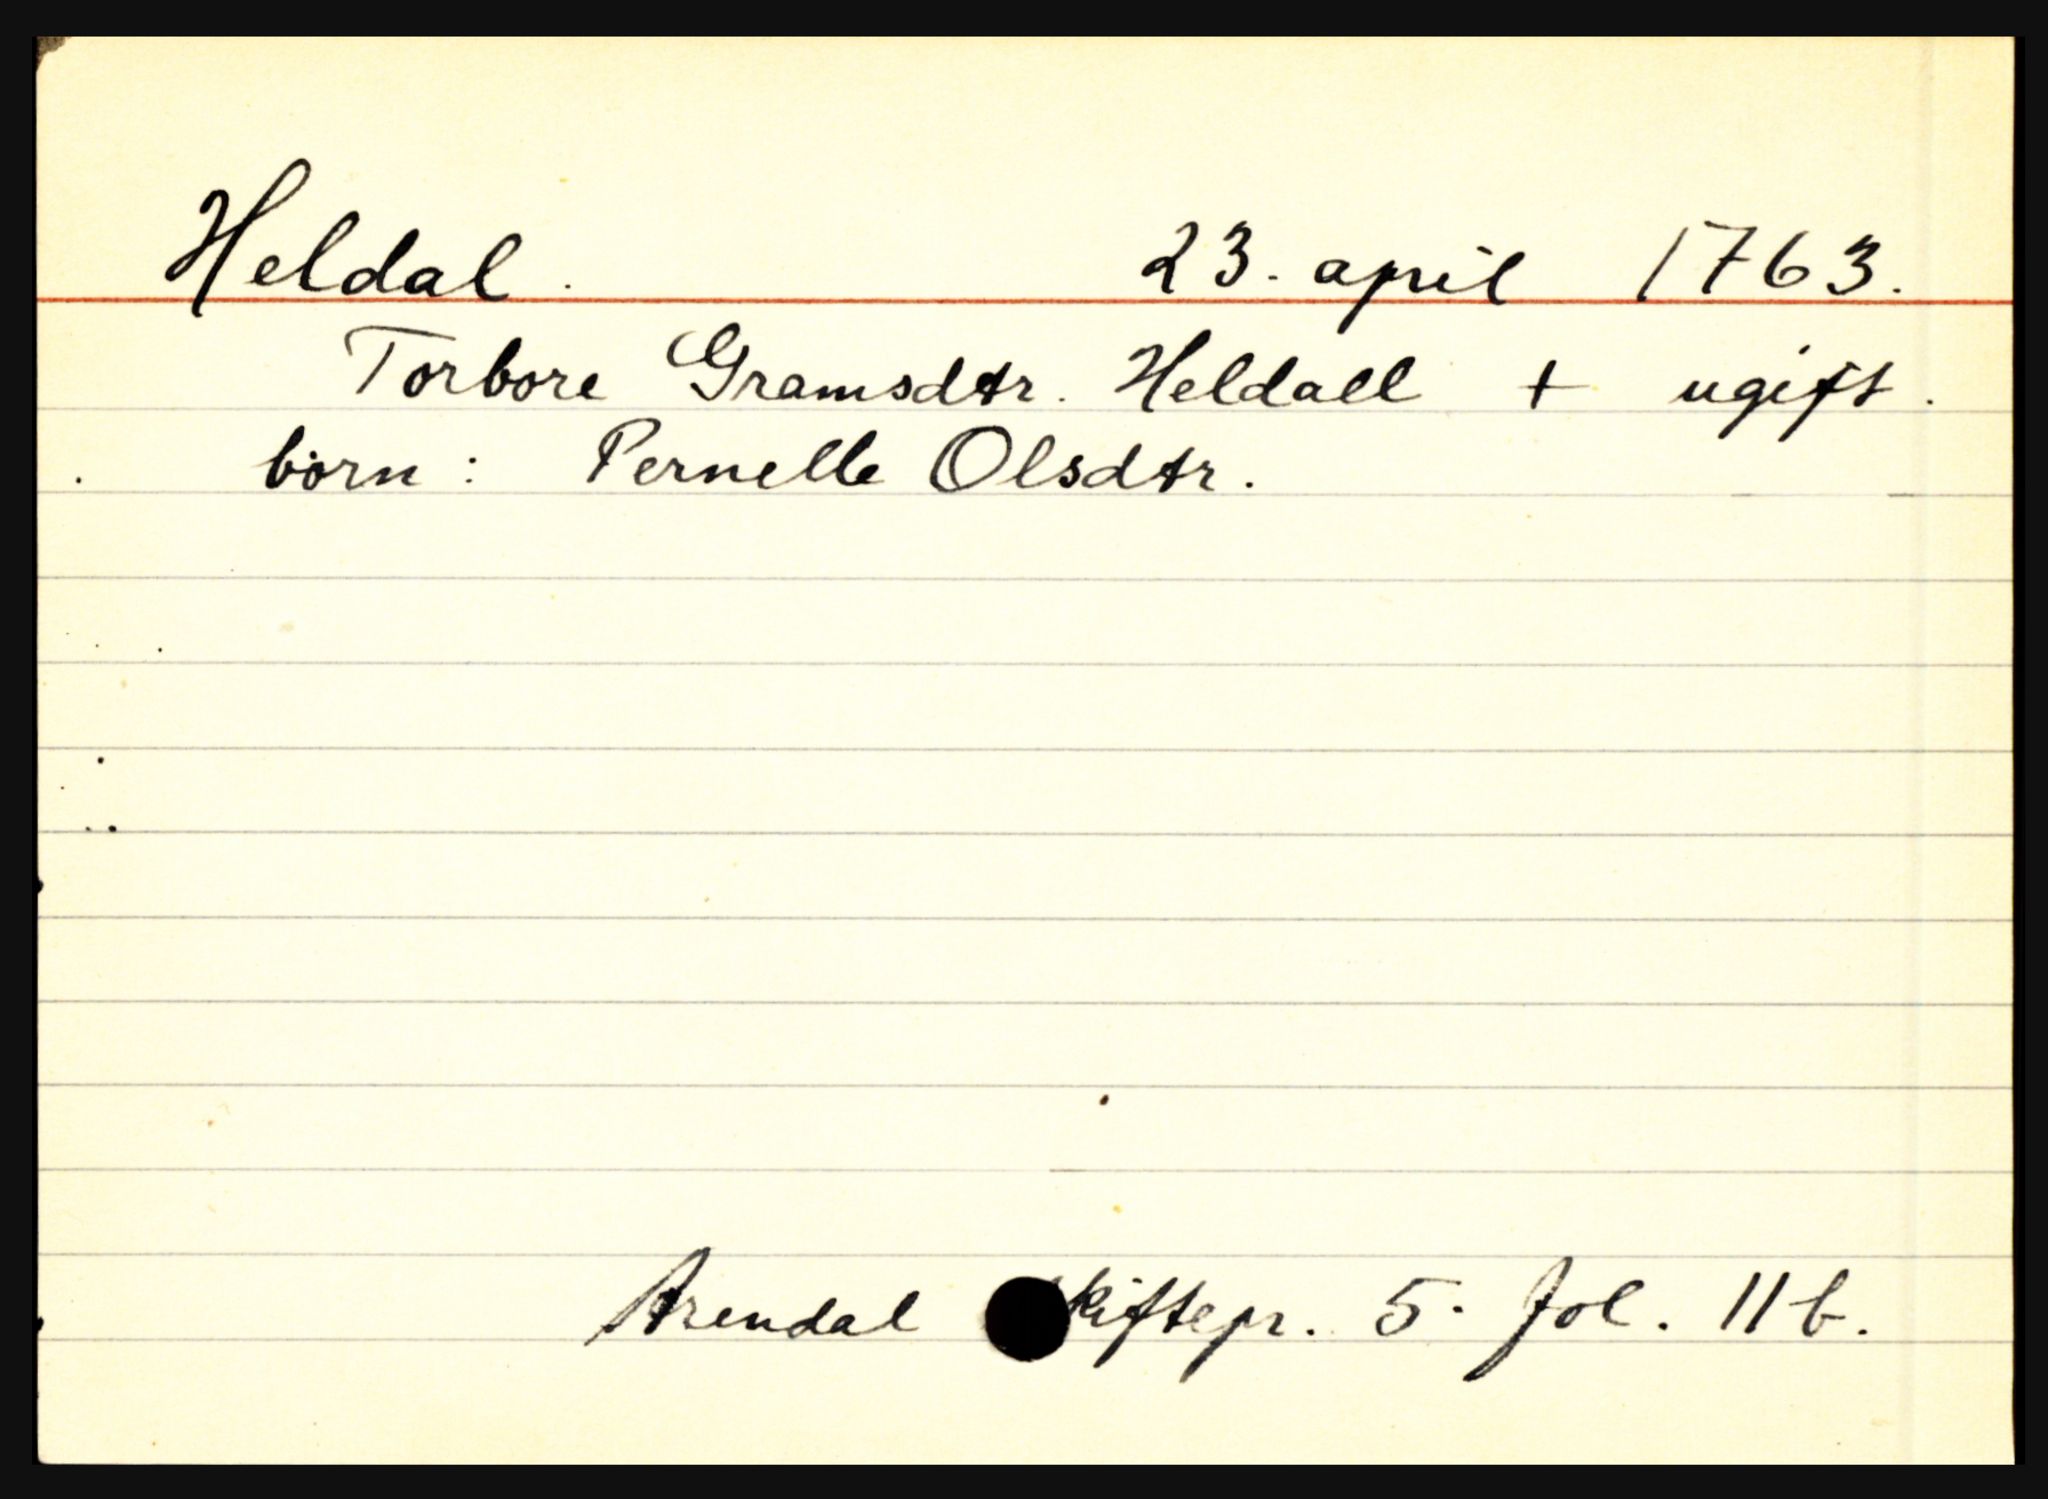 Heldal. 23. april 1763.
Torbore Gramsdtr. Heldall + ugift.
börn: Pernelle Olsdtr.
Arendal skiftepr. 5. fol. 11b.